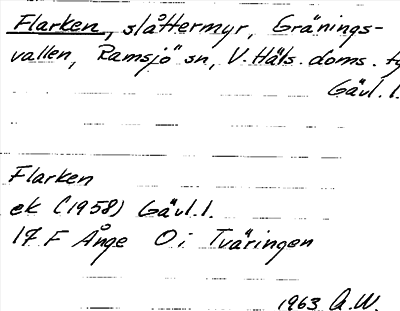 Flarken, slåttermyr, Gränings-
vallen, Ramsjö sn, V. Häls. doms.
Gävl. l.
Flarken
ek (1958) Gävl. l.
17 F Ånge O i Tväringen
1963 A.W.